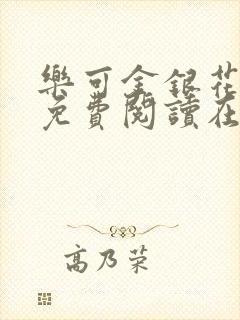 樂可金銀花
免費閱讀在
高乃荣